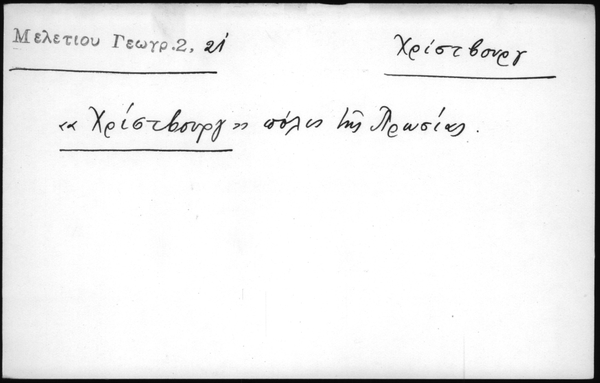 Μελετίου Γεωγρ.2, 21
Χρίστβουργ
« Χρίστβουργ » πόλις τῆς Πρωσίας.